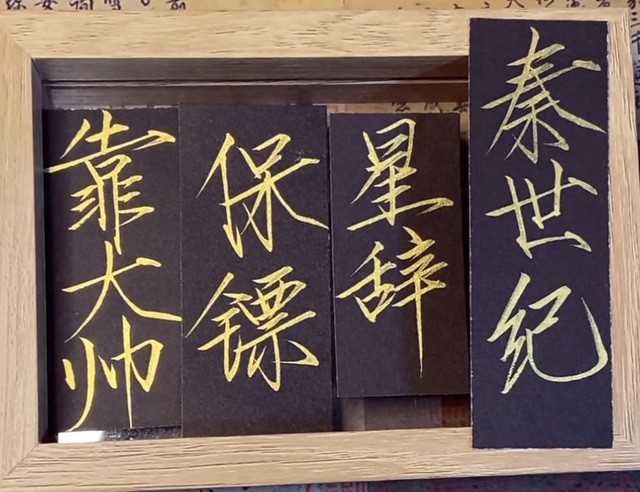 秦世纪
星辞
保镖
靠大帅